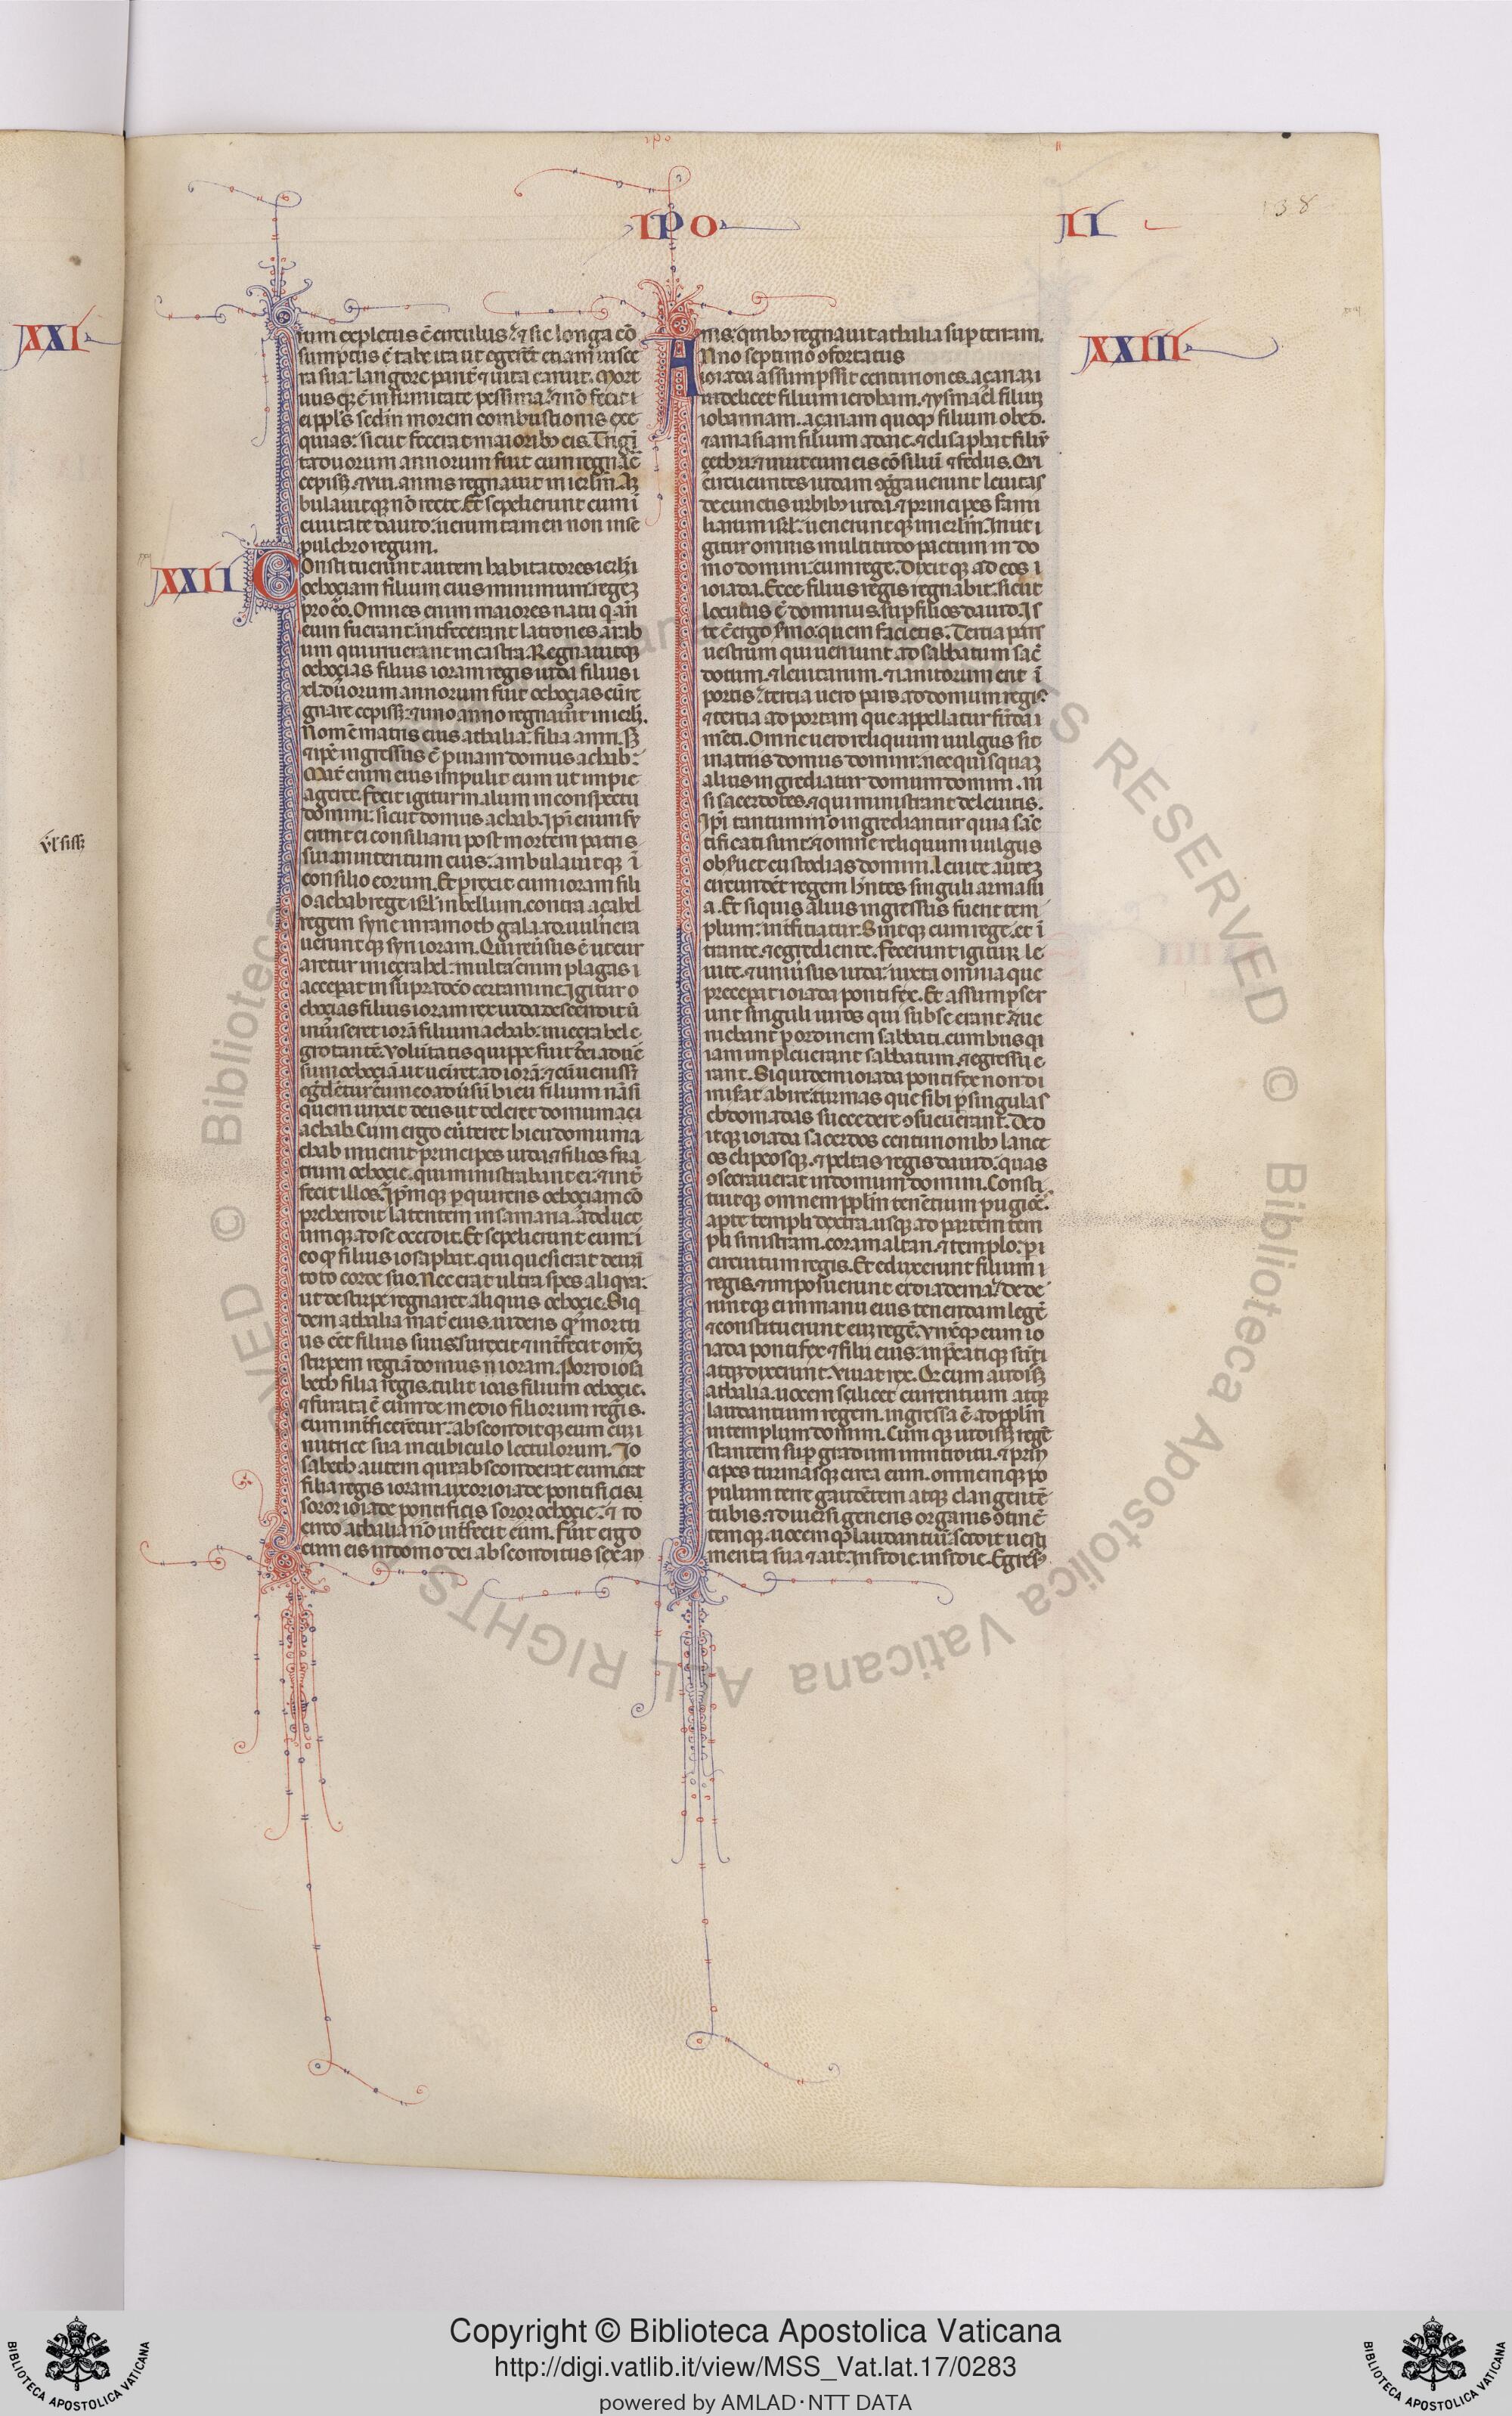 IPO
II
138
XXI
XXII
XXIII
rum expletus ē circulus. ⁊ sic longa cō
sumptus ē tabe ita ut egerēt etiam uisce
ra sua. langore parit̄ ⁊ uita caruit. Mort
uus qꝫ ē infirmitate pessima. ⁊ nō fecit i
ei ppl̄s sedm̄ morem combustionis exe
quias. sicut fecerat maioribꝫ eiꝰ. Trigī
ta duorum annorum fuit cum regnāe
cepissꝫ. ⁊ viii. annis regnauit in ierl̄m. Am
bulauitqꝫ nō recte. Et sepelierunt eum ī
ciuitate dauid. uerum tamen non in se
pulchro regum.
Constituerunt autem habitatores ierl̄m
ochoziam filium eius minimum. regeꝫ
pro eo. Omnes enim maiores natu q̇ an̄
eum fuerant. int̄fecerant latrones arab
um qui irruerant in castra. Regnauitqꝫ
ochozias filius ioram regis iuda filius i
xl. duorum annorum fuit ochozias cū re
gnare cepissꝫ. ⁊ uno anno regnauit in ierl̄m.
Nomē matris eius athalia. filia amri. Sꝫ
⁊ ip̄e ingressus ē p uiam domus achab.
Mat̄ enim eius impulit eum ut impie
ageret. Fecit igitur malum in conspectu
domini. sicut domus achab. Ip̄i enim fu
erunt ei consiliarii post mortem patris
sui in interitum eius. ambulauitqꝫ ī
consilio eorum. Et perrexit cum ioram fili
o achab rege isr̄l in bellum. contra azahel
regem syrie in ramoth galaad. uulnera
ueruntqꝫ syri ioram. Qui reūsus ē ut cur
aretur in iezrahel. multas enim plagas i
acceperat in supradco certamine. Igitur o
chozias filius ioram rex iuda descendit ū
inuiseret iorā filium achab. in iezrahel e
grotantē. Voluntatis quippe fuit dei aduē
sum ochoziā. ut ueniret ad iorā. ⁊ cū uenissꝫ
egrederetur cum eo aduersū hieu filium nāsi
quem unxit deus ut deleret domum aci
achab. Cum ergo euerteret hieu domum a
chab inuenit principes iuda ⁊ filios fra
trum ochozie. qui ministrabant ei. ⁊ int̄
fecit illos. Ip̄mqꝫ perquirens ochoziam cō
prehendit latentem in samaria. adduct
umqꝫ ad se occidit. Et sepelierunt eum. i
eo qꝫ filius iosaphat. qui quesierat deum
toto corde suo. Nec erat ultra spes aliqua.
ut de stirpe regnaret aliquis ochozie. Siq
dem athalia mat̄ eius. uidens qꝫ mortu
us eēt filius suus. surrexit ⁊ int̄fecit omēꝫ
stirpem regiā domus ioram. Porro iosa
beth filia regis. tulit ioas filium ochozie.
⁊ furata ē eum de medio filiorum regis.
cum int̄ficerētur. absconditqꝫ eum cum
nutrice sua in cubiculo lectulorum. Io
sabeth autem que absconderat eum. erat
filia regis ioram. uxor ioiade pontificis
soror ioiade pontificis soror ochozie. ⁊ id
circo athalia nō int̄fecit eum. Fuit ergo
cum eis in domo dei absconditus sex an
nis. quibꝫ regnauit athalia sup terram.
Anno septimo ↄfortatus
ioiada assumpsit centuriones. azariam
uidelicet filium ieroham. ⁊ ysmael filium
iohannam. azariam quoqꝫ filium obed.
⁊ amasiam filium adaie. ⁊ elisaphat filiū
zechri. ⁊ iniit cum eis cōsiliū ⁊ fedus. Qui
circueuntes iudam ↄgregauerunt leuitas
de cunctis urbibꝫ iuda. ⁊ principes fami
liarum isr̄l. ueneruntqꝫ in ierl̄m. Iniit i
gitur omnis multitudo pactum in do
mo domini. cum rege. Dixitqꝫ ad eos i
ioiada. Ecce filius regis regnabit. sicut
locutus ē dominus. sup filios dauid. Is
te ē ergo sermo. quem facietis. Tertia pars
uestrum qui ueniunt ad sabbatum sac̄
dotum. ⁊ leuitarum. ⁊ ianitorum erit ī
portis. tertia uero pars ad domum regis.
⁊ tertia ad portam que appellatur funda
mēti. Omne uero reliquum uulgus sit
in atriis domus domini. nec quisquam
alius ingrediatur domum domini. ni
si sacerdotes. ⁊ qui ministrant de leuitis.
Ip̄i tantummodo ingrediantur quia sāc
tificati sunt. ⁊ omne reliquum uulgus
obseruet custodias domini. Leuite autem
circundēt regem hn̄tes singuli arma su
a. Et si quis alius ingressus fuerit tem
plum. int̄ficiatur. Sintqꝫ cum rege. et ī
trante. ⁊ egrediente. Fecerunt igitur le
uite. ⁊ uniuersus iuda. iuxta omnia que
preceperat ioiada pontifex. Et assumpser
unt singuli uiros qui sub se erant. ⁊ ue
niebant p ordinem sabbati. cum his qi
iam impleuerant sabbatum. ⁊ egressuri e
rant. Siquidem ioiada pontifex non di
miserat abire turmas que sibi p singulas
ebdomadas succedere ↄsueuerant. Ded
itqꝫ ioiada sacerdos centurionibꝫ lance
as clipeosqꝫ. ⁊ peltas regis dauid. quas
ↄsecrauerat in domum domini. Consti
tuitqꝫ omnem ppl̄m tenētium pugiōes.
a parte templi dextra. usqꝫ ad partem tem
pli sinistram. coram altari. ⁊ templo. p
circuitum regis. Et eduxerunt filium
regis. ⁊ imposuerunt ei diadema. dede
runtqꝫ ei in manu eius tenendam legē
⁊ constituerunt eum regē. Vnxitqꝫ eum io
iada pontifex ⁊ filii eius. inprecatiqꝫ sunt
atqꝫ dixerunt. Viuat rex. Qd cum audissꝫ
athalia. uocem scilicet currentium atqꝫ
laudantium regem. ingressa ē ad ppl̄m
in templum domini. Cumqꝫ uidissꝫ regē
stantem sup gradum in introitu. ⁊ prin
cipes turmasqꝫ circa eum. omnemqꝫ po
pulum terre gaudētem atqꝫ clangentē
tubis. ⁊ diuersi generis organis ↄcinē
temqꝫ. uocemqꝫ laudantium. scidit uesti
menta sua ⁊ ait. Insidie. insidie. Egressꝰ
Copyright © Biblioteca Apostolica Vaticana
http://digi.vatlib.it/view/MSS_Vat.lat.17/0283
powered by AMLAD·NTT DATA
BIBLIOTECA APOSTOLICA VATICANA
BIBLIOTECA APOSTOLICA VATICANA